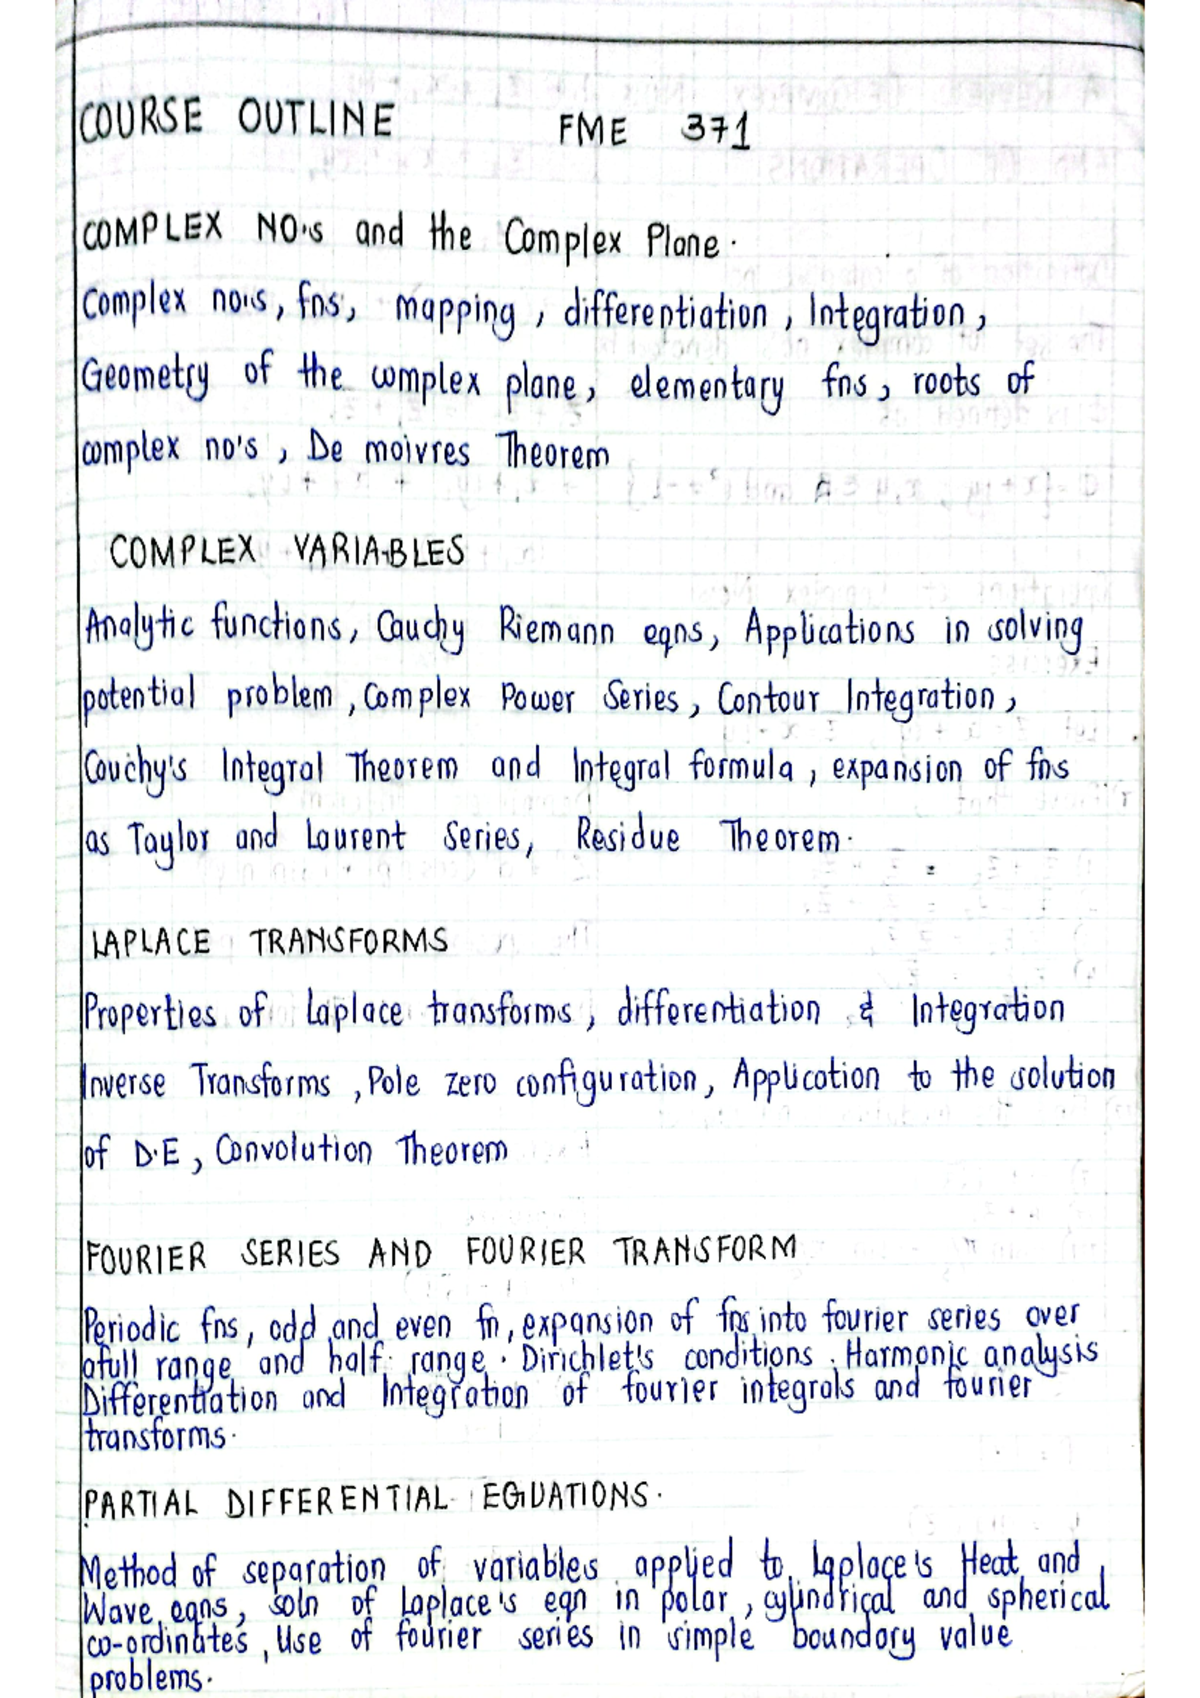 COURSE OUTLINE FME 371
COMPLEX NO's and the Complex Plane.
Complex no's, fns, mapping, differentiation, Integration,
Geometry of the complex plane, elementary fns, roots of
complex no's, De moivres Theorem
COMPLEX VARIABLES
Analytic functions, Cauchy Riemann eqns, Applications in solving
potential problem, Complex Power Series, Contour Integration,
Cauchy's Integral Theorem and Integral formula, expansion of fns
as Taylor and Laurent Series, Residue Theorem.
LAPLACE TRANSFORMS
Properties of Laplace transforms, differentiation & Integration
Inverse Transforms, Pole zero configuration, Application to the solution
of D.E, Convolution Theorem
FOURIER SERIES AND FOURIER TRANSFORM
Periodic fns, odd and even fn, expansion of fns into fourier series over
afull range and half range. Dirichlet's conditions. Harmonic analysis
Differentiation and Integration of fourier integrals and fourier
transforms.
PARTIAL DIFFERENTIAL EQUATIONS.
Method of separation of variables applied to Laplace's Heat and
Wave eqns, soln of Laplace's eqn in polar, cylindrical and spherical
co-ordinates, Use of fourier series in simple boundary value
problems.